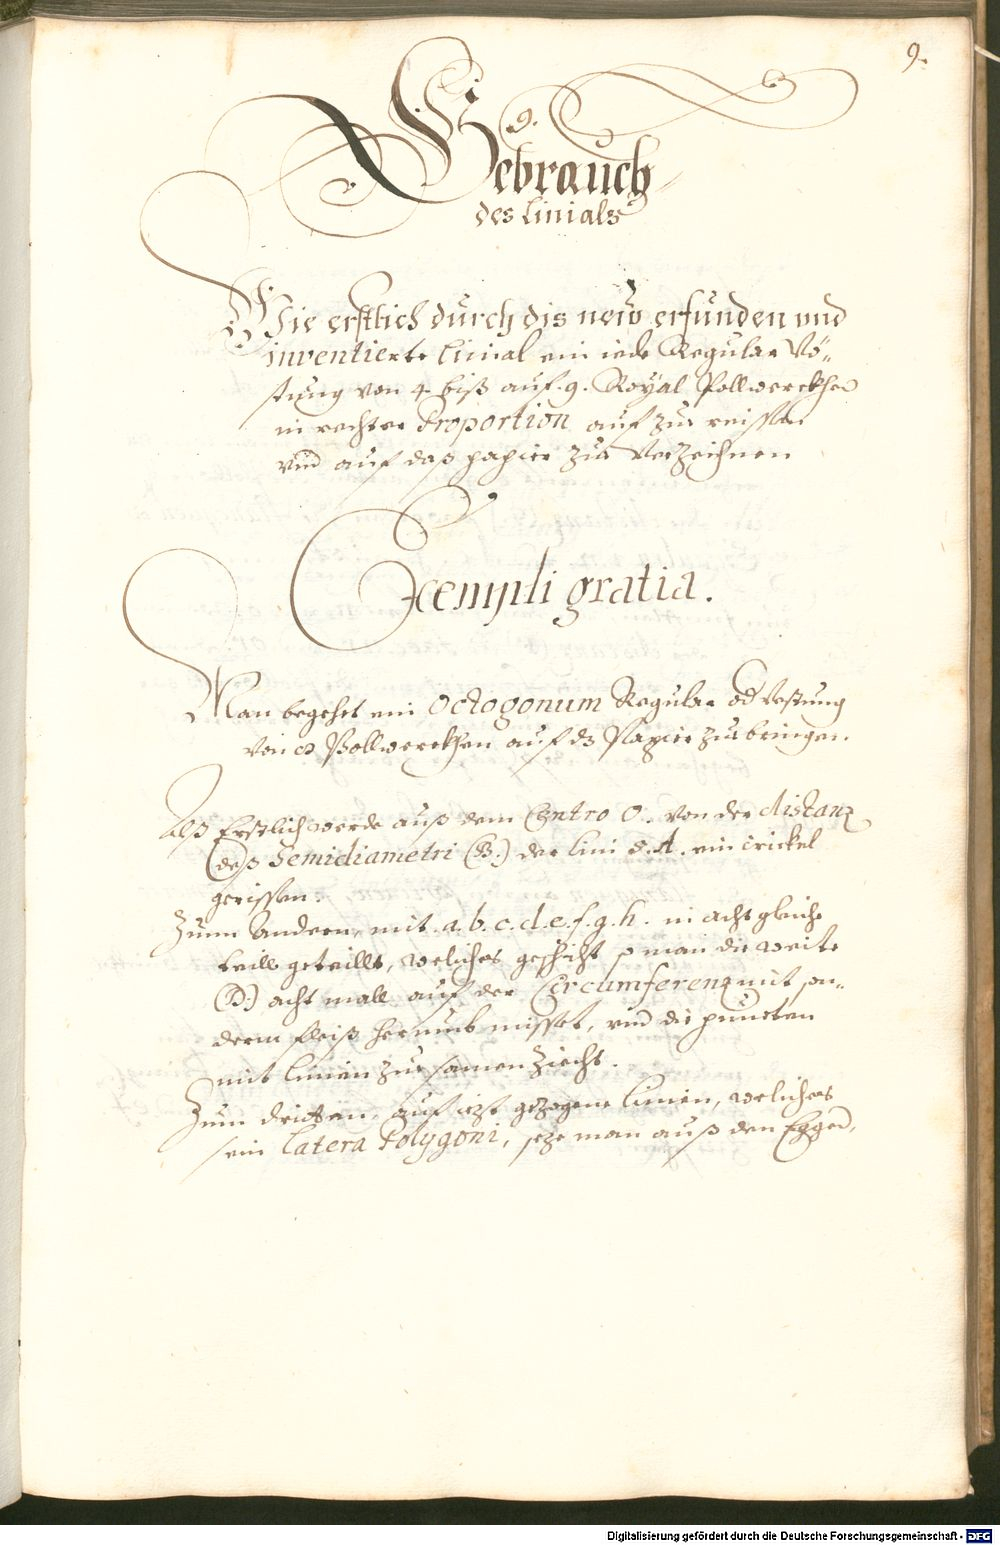 9.
9.
Gebrauch
des Linials
Wie erstlich durch dis new erfunden vnd
inventierte Linial ein iede Regular Vö-
stung von 4. biß auf .9. Royal Pollwerckhen
in rechter Proportion auf zur reissen
vnd auf daß papier zur Verzeichnen
Exempli gratia.
Man begehrt ein Octogonum Regular od Vestung
von 8 Bollwerckhen auf dz Papier zur bringen.
Alß Erstlich werde auß dem Centro O. von der distanz
deß Semidiametri (B.) der lini 8.A. ein cirickel
gerissen.
Zum Andern, mit .a.b.c.d.e.f.g.h. in acht gleiche
teill geteillt, weliches geschicht so man die weite
(D.) acht mall auf der Circumferenz mit son-
derm fleiß herumb misset, vnd die puncten
mit linien zur samen ziecht.
Zum dritten, auf iezt gezogene linien, weliches
sein Latera Polygoni, seze man auß den Eggen,
Digitalisierung gefördert durch die Deutsche Forschungsgemeinschaft - DFG